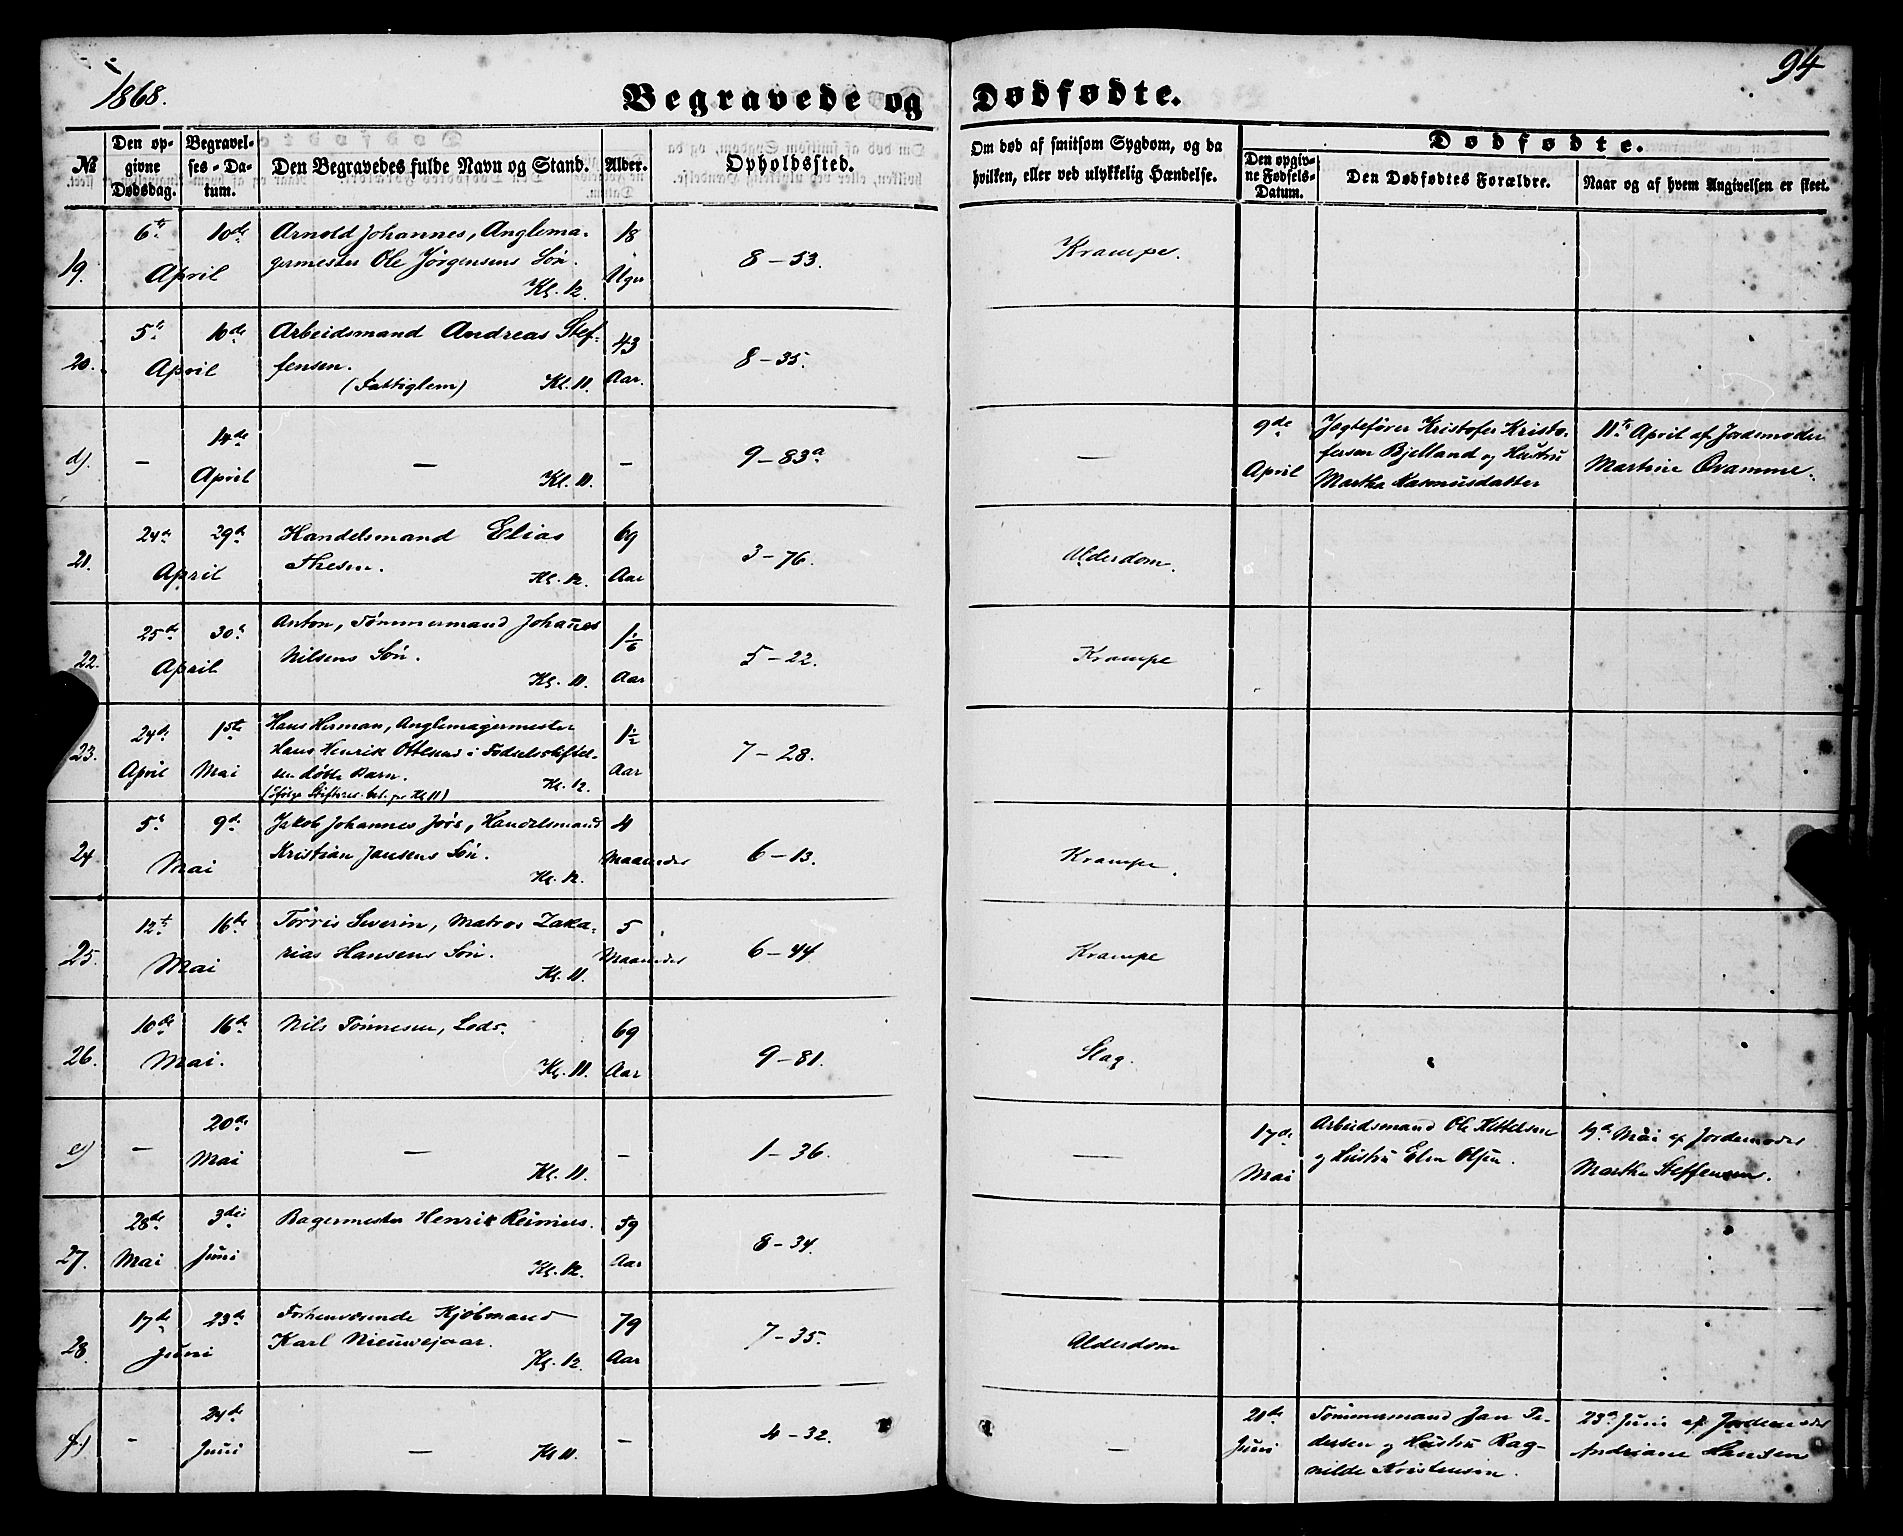 1868.
94
Begravede og Dødfødte.
№
Den op-
givne
Dødsdag.
Begravel-
ses-Da-
tum.
Den Begravedes fulde Navn og Stand.
Alder.
Opholdssted.
Om død af smitsom Sygdom, og da
hvilken, eller ved ulykkelig Hændelse.
Dødfødte.
Den opgiv-
ne Fødsels-
Datum.
Den Dødfødtes Forældre.
Naar og af hvem Angivelsen er skeet.
19. 6te 10de April
Arnold Johannes, Anglema-
germester Ole Jørgensens Søn.
Kl. 12.
18 Uger
8-53.
Krampe.
20. 5te 10de April
Arbeidsmand Andreas Stef-
fensen.
(Fattiglem) Kl. 11.
43 Aar.
8-35.
d). - 14de April
- Kl. 11.
-
9-83a
-
9de April
Jagtefører Kristofer Kristo-
fersen Bjelland og Hustru
Martha Rasmusdatter
11te April af Jordemoder
Martine Qvamme.
21. 24de 29de April
Handelsmand Elias
Thesen. Kl. 12.
69 Aar
3-76.
Alderdom.
22. 25de 30te April
Anton, Tømmermand Johanes
Nilsens Søn.
Kl. 11.
1 1/6 Aar
5-22.
Krampe
23. 24de April 1ste Mai
Hans Herman, Anglemagermester
Hans Henrik Ottesens i Fødselsstiftel-
sen døbte Barn.
Kl. 12.
1 1/2 Aar
7-28.
24 5te 9de Mai
Jakob Johannes Joős, Handelsmand
Kristian Jansens Søn.
Kl. 12.
4 Maaneder
6-13.
Krampe.
25. 12te 16de Mai
Tørris Severin, Matros Zaka-
rias Hansens Søn.
Kl. 11.
5 Maaneder
6-44
Krampe
26. 10de 16de Mai.
Nils Tønnesen, Lods.
Kl. 11.
69 Aar
9-81.
Slag.
e) - 20de Mai
- Kl. 11.
-
1-36.
-
17de Mai
Arbeidsmand Ole Kittelsen
og Hustru Elen Olsen.
19de Mai af Jordemoder
Martha Steffensen.
27. 28de Mai 3die Juni
Bagermester Henrik Reimers.
Kl. 12.
59 Aar
8-34.
28. 17de 23de Juni
Forhenværende Kjøbmand
Karl Nieuwejaar.
Kl. 12.
79 Aar
7-35.
Alderdom
f.) - 24de Juni
- Kl. 11.
-
4-32.
-
21de Juni
Tømmermand Jan Pe-
dersen og Hustru Rag-
nilde Kristensen.
23de Juni af Jordemoder
Andriane Hansen